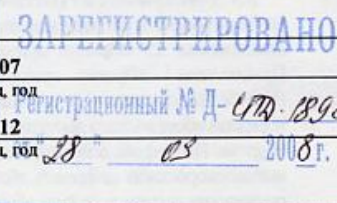 ЗАРЕГИСТРИРОВАНО
07
, год
Регистрационный № Д-
12
, год "28" 03 2008 г.